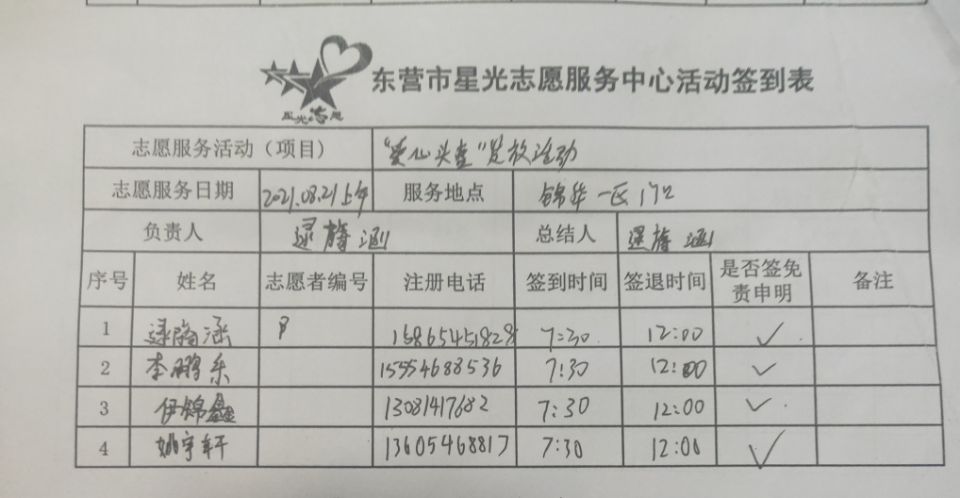 星光志愿
东营市星光志愿服务中心活动签到表
志愿服务活动（项目） "爱心头盔"发放活动
志愿服务日期 2021.08.21上午 服务地点 锦华一区门口
负责人 总结人
序号 姓名 志愿者编号 注册电话 签到时间 签退时间 是否签免责申明 备注
1 15865451828 7:30 12:00 ✓
2 李鹏乐 15554688536 7:30 12:00 ✓
3 伊锦鑫 13081417682 7:30 12:00 ✓
4 姚宇轩 13605468817 7:30 12:00 ✓